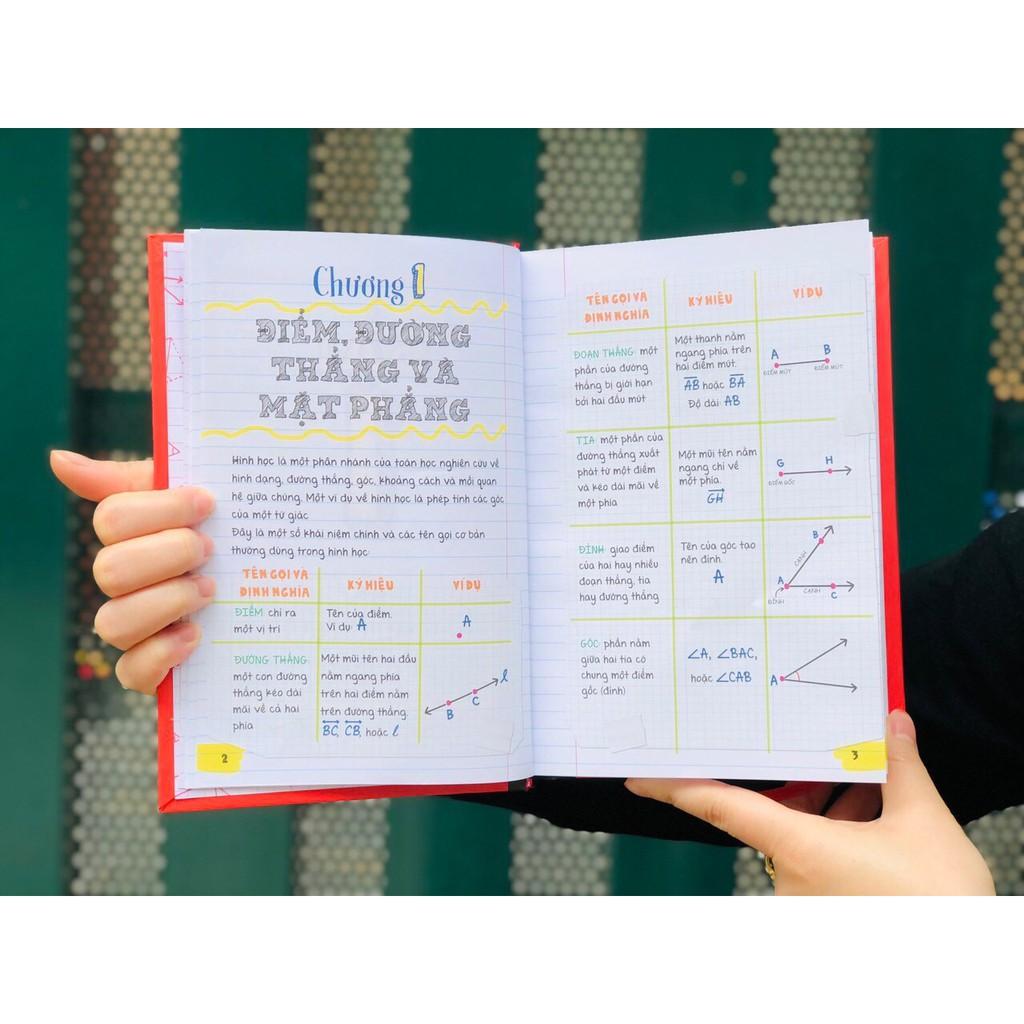 Chương 1
ĐIỂM, ĐƯỜNG
THẲNG VÀ
MẶT PHẲNG
Hình học là một phân nhánh của toán học nghiên cứu về
hình dạng, đường thẳng, góc, khoảng cách và mối quan
hệ giữa chúng. Một ví dụ về hình học là phép tính các góc
của một tứ giác
Đây là một số khái niệm chính và các tên gọi cơ bản
thường dùng trong hình học:
TÊN GỌI VÀ
ĐỊNH NGHĨA
KÝ HIỆU
VÍ DỤ
ĐIỂM: chỉ ra
một vị trí
Tên của điểm.
Ví dụ: A
A
ĐƯỜNG THẲNG:
một con đường
thẳng kéo dài
mãi về cả hai
phía
Một mũi tên hai đầu
nằm ngang phía
trên hai điểm nằm
trên đường thẳng.
BC, CB, hoặc l
B
C
l
2
TÊN GỌI VÀ
ĐỊNH NGHĨA
KÝ HIỆU
VÍ DỤ
ĐOẠN THẲNG: một
phần của đường
thẳng bị giới hạn
bởi hai đầu mút
Một thanh nằm
ngang phía trên
hai điểm mút.
AB hoặc BA
Độ dài: AB
A
B
ĐIỂM MÚT
ĐIỂM MÚT
TIA: một phần của
đường thẳng xuất
phát từ một điểm
và kéo dài mãi về
một phía
Một mũi tên nằm
ngang chỉ về
một phía.
GH
G
H
ĐIỂM GỐC
ĐỈNH: giao điểm
của hai hay nhiều
đoạn thẳng, tia
hay đường thẳng
Tên của góc tạo
nên đỉnh.
A
B
CẠNH
A
ĐỈNH
CẠNH
C
GÓC: phần nằm
giữa hai tia có
chung một điểm
gốc (đỉnh)
∠A, ∠BAC,
hoặc ∠CAB
A
3